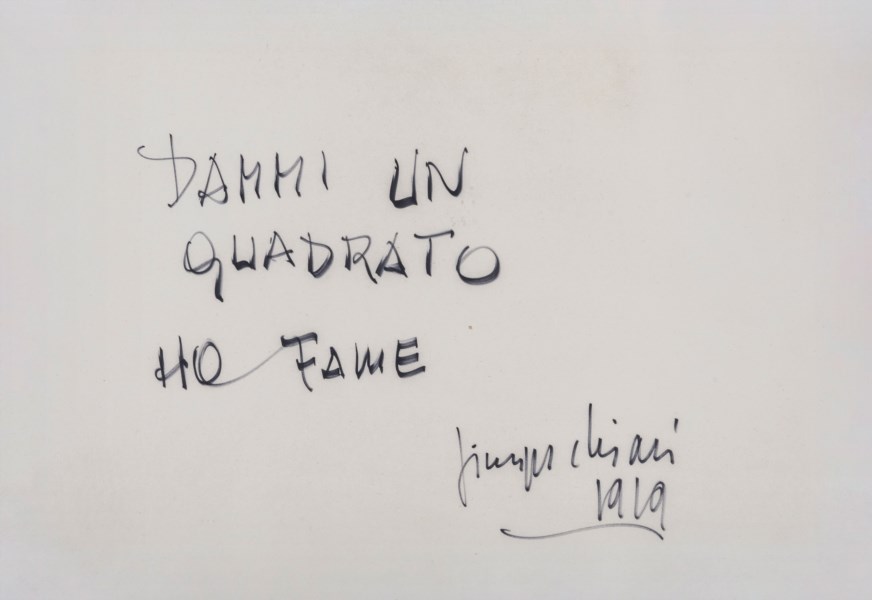 DAMMI UN
QUADRATO
HO FAME
giuseppe chiari